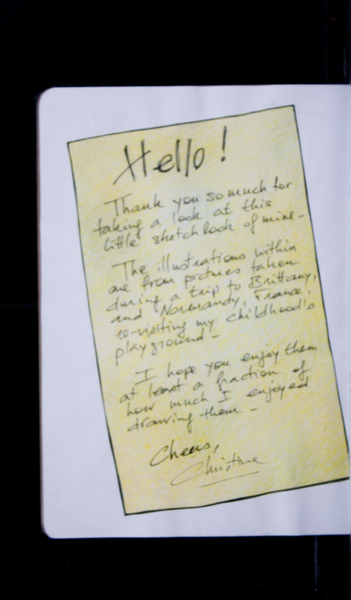 Hello!
Thank you so much for
taking a look at this
little sketchbook of mine-
The illustrations within
are from pictures taken
during a trip to Brittany,
and Normandy, France,
re-visiting my childhood's
playground-
I hope you enjoy them
at least a fraction of
how much I enjoyed
drawing them-
Cheers,
Christine